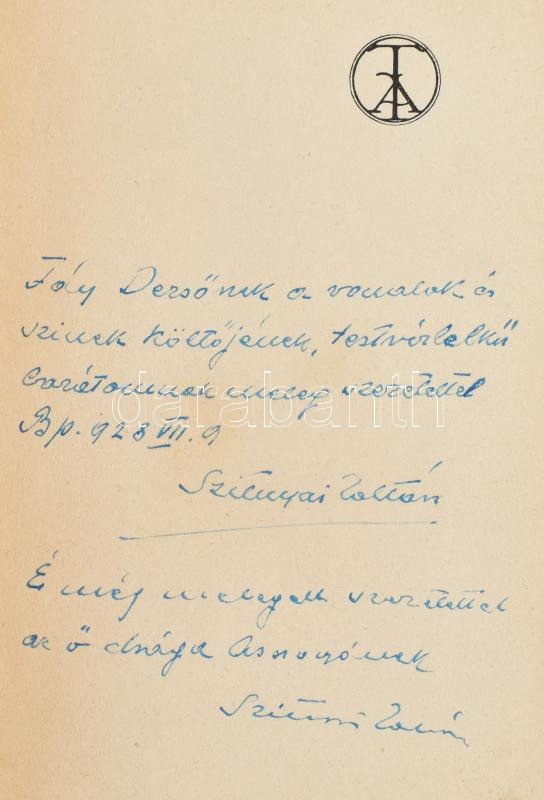 TA
Fáy Dezsőnek a vonalak és
színek költőjének, testvérlelkű
barátomnak meleg szeretettel
darabanth
Bp. 923 VII. 9
Szitnyai Zoltán
És még melegebb szeretettel
az ő drága Asszonyának
Szitnyai Zoltán